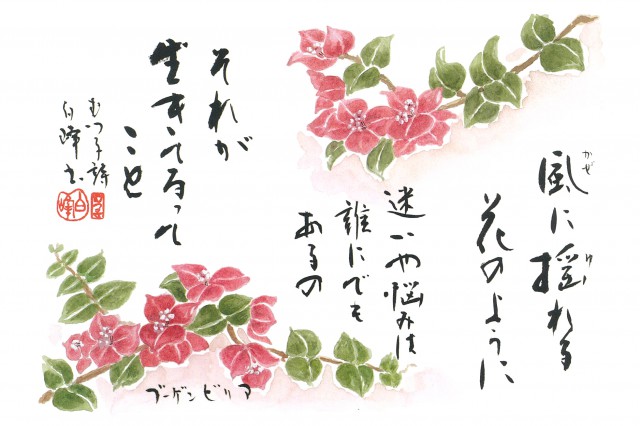 風に揺れる
かぜ
ゆ
花のように
迷いや悩みは
誰にでも
あるの
それが
生きてるって
こと
むつ子詩
白峰書
ブーゲンビリア